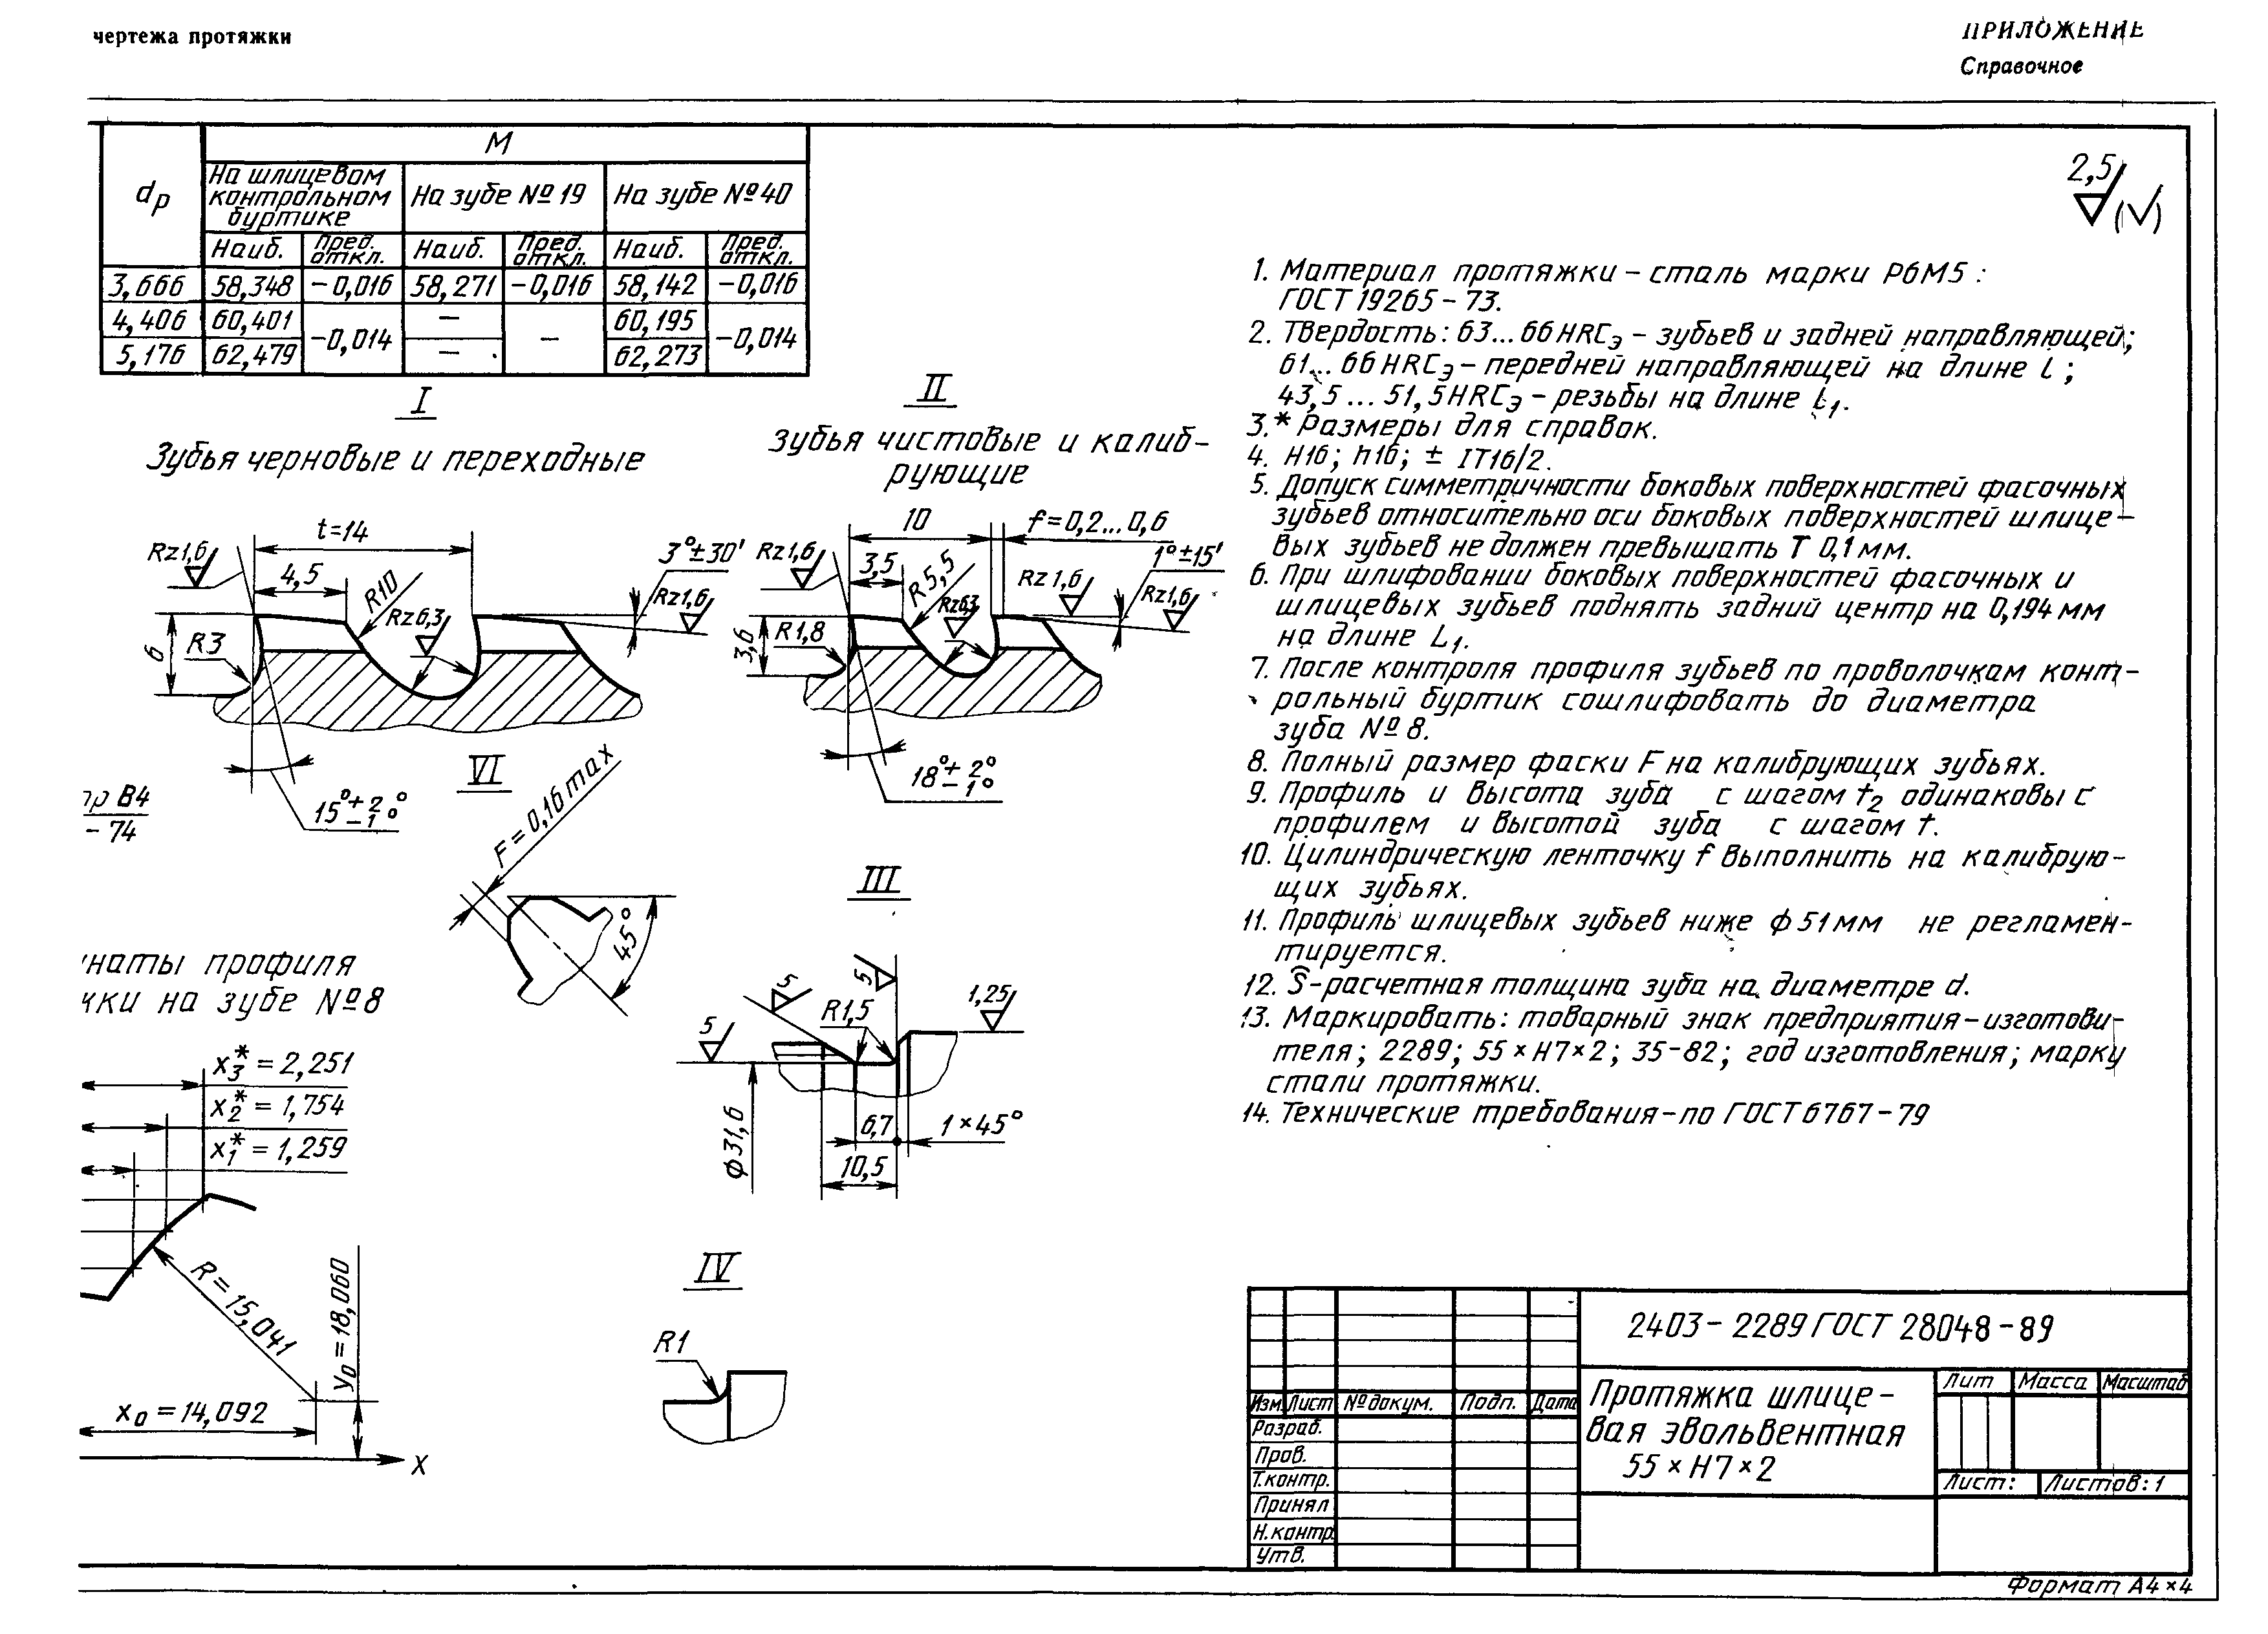 чертежа протяжки
ПРИЛОЖЕНИЕ
Справочное
dр
М
На шлицевом контрольном буртике
На зубе №19
На зубе №40
Наиб.
Пред. откл.
Наиб.
Пред. откл.
Наиб.
Пред. откл.
3,666 58,348 -0,016 58,271 -0,016 58,142 -0,016
4,406 60,401 -0,014 — — 60,195 -0,014
5,176 62,479 — 62,273
2,5 (√)
1. Материал протяжки – сталь марки Р6М5 :
ГОСТ 19265-73.
2. Твердость: 63...66HRCэ – зубьев и задней направляющей;
61... 66HRCэ – передней направляющей на длине l ;
43,5 ... 51,5HRCэ – резьбы на длине l₁.
3.* Размеры для справок.
4. H16; h16; ± IT16/2.
5. Допуск симметричности боковых поверхностей фасочных
зубьев относительно оси боковых поверхностей шлице-
вых зубьев не должен превышать Т 0,1мм.
6. При шлифовании боковых поверхностей фасочных и
шлицевых зубьев поднять задний центр на 0,194 мм
на длине L₁.
7. После контроля профиля зубьев по проволочкам конт-
рольный буртик сошлифовать до диаметра
зуба №8.
8. Полный размер фаски F на калибрующих зубьях.
9. Профиль и высота зуба с шагом t₂ одинаковы с
профилем и высотой зуба с шагом t.
10. Цилиндрическую ленточку f выполнить на калибрую-
щих зубьях.
11. Профиль шлицевых зубьев ниже ф 51мм не регламен-
тируется.
12. S̑-расчетная толщина зуба на диаметре d.
13. Маркировать: товарный знак предприятия-изготови-
теля; 2289; 55×H7×2; 35-82; год изготовления; марку
стали протяжки.
14. Технические требования-по ГОСТ 6767-79
I
Зубья черновые и переходные
t=14
Rz1,6
4,5
R10
Rz6,3
3°±30'
Rz1,6
6
R3
15°+2°-1°
II
Зубья чистовые и калиб-
рующие
10
f=0,2...0,6
Rz1,6
3,5
R5,5
Rz6,3
Rz1,6
1°±15'
Rz1,6
3,6
R1,8
18°+2°-1°
VI
F=0,16max
45°
В4
- 74
наты профиля
жки на зубе №8
x₃* = 2,251
x₂* = 1,754
x₁* = 1,259
R=15,041
y₀=18,060
x₀=14,092
X
III
5
5
5
R1,5
1,25
ф31,6
6,7
1×45°
10,5
IV
R1
2403-2289 ГОСТ 28048-89
Протяжка шлице-
вая эвольвентная
55×H7×2
Лит Масса Масштаб
Лист: Листов: 1
Изм. Лист №докум. Подп. Дата
Разраб.
Пров.
Т.контр.
Принял
Н.контр.
Утв.
Формат А4×4